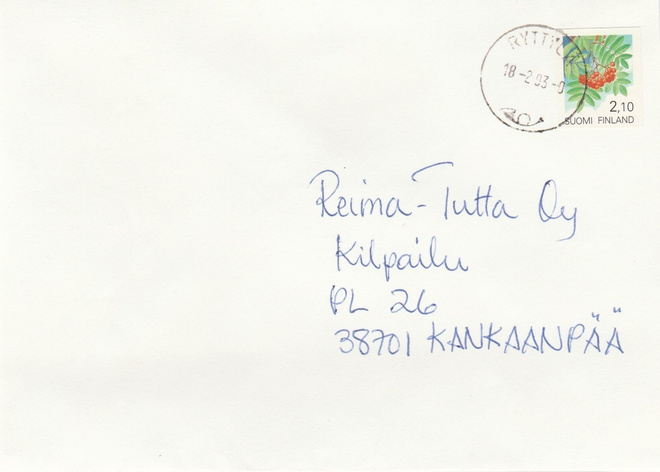 RYTTYLÄ
18-2.93-0
2,10
SUOMI FINLAND
Reima-Tutta Oy
Kilpailu
PL 26
38701 KANKAANPÄÄ